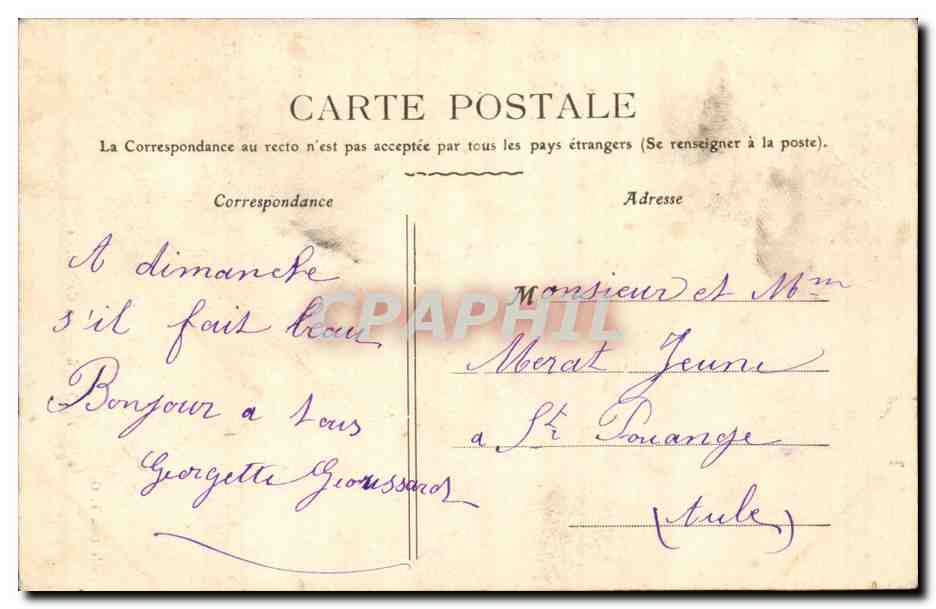 CARTE POSTALE
La Correspondance au recto n'est pas acceptée par tous les pays étrangers (Se renseigner à la poste).
Correspondance
A dimanche
s'il fait beau
Bonjour a tous
Georgette
Adresse
Monsieur et Mm
Merat Jeune
a St Pouange
(Aube)
CPAPHIL